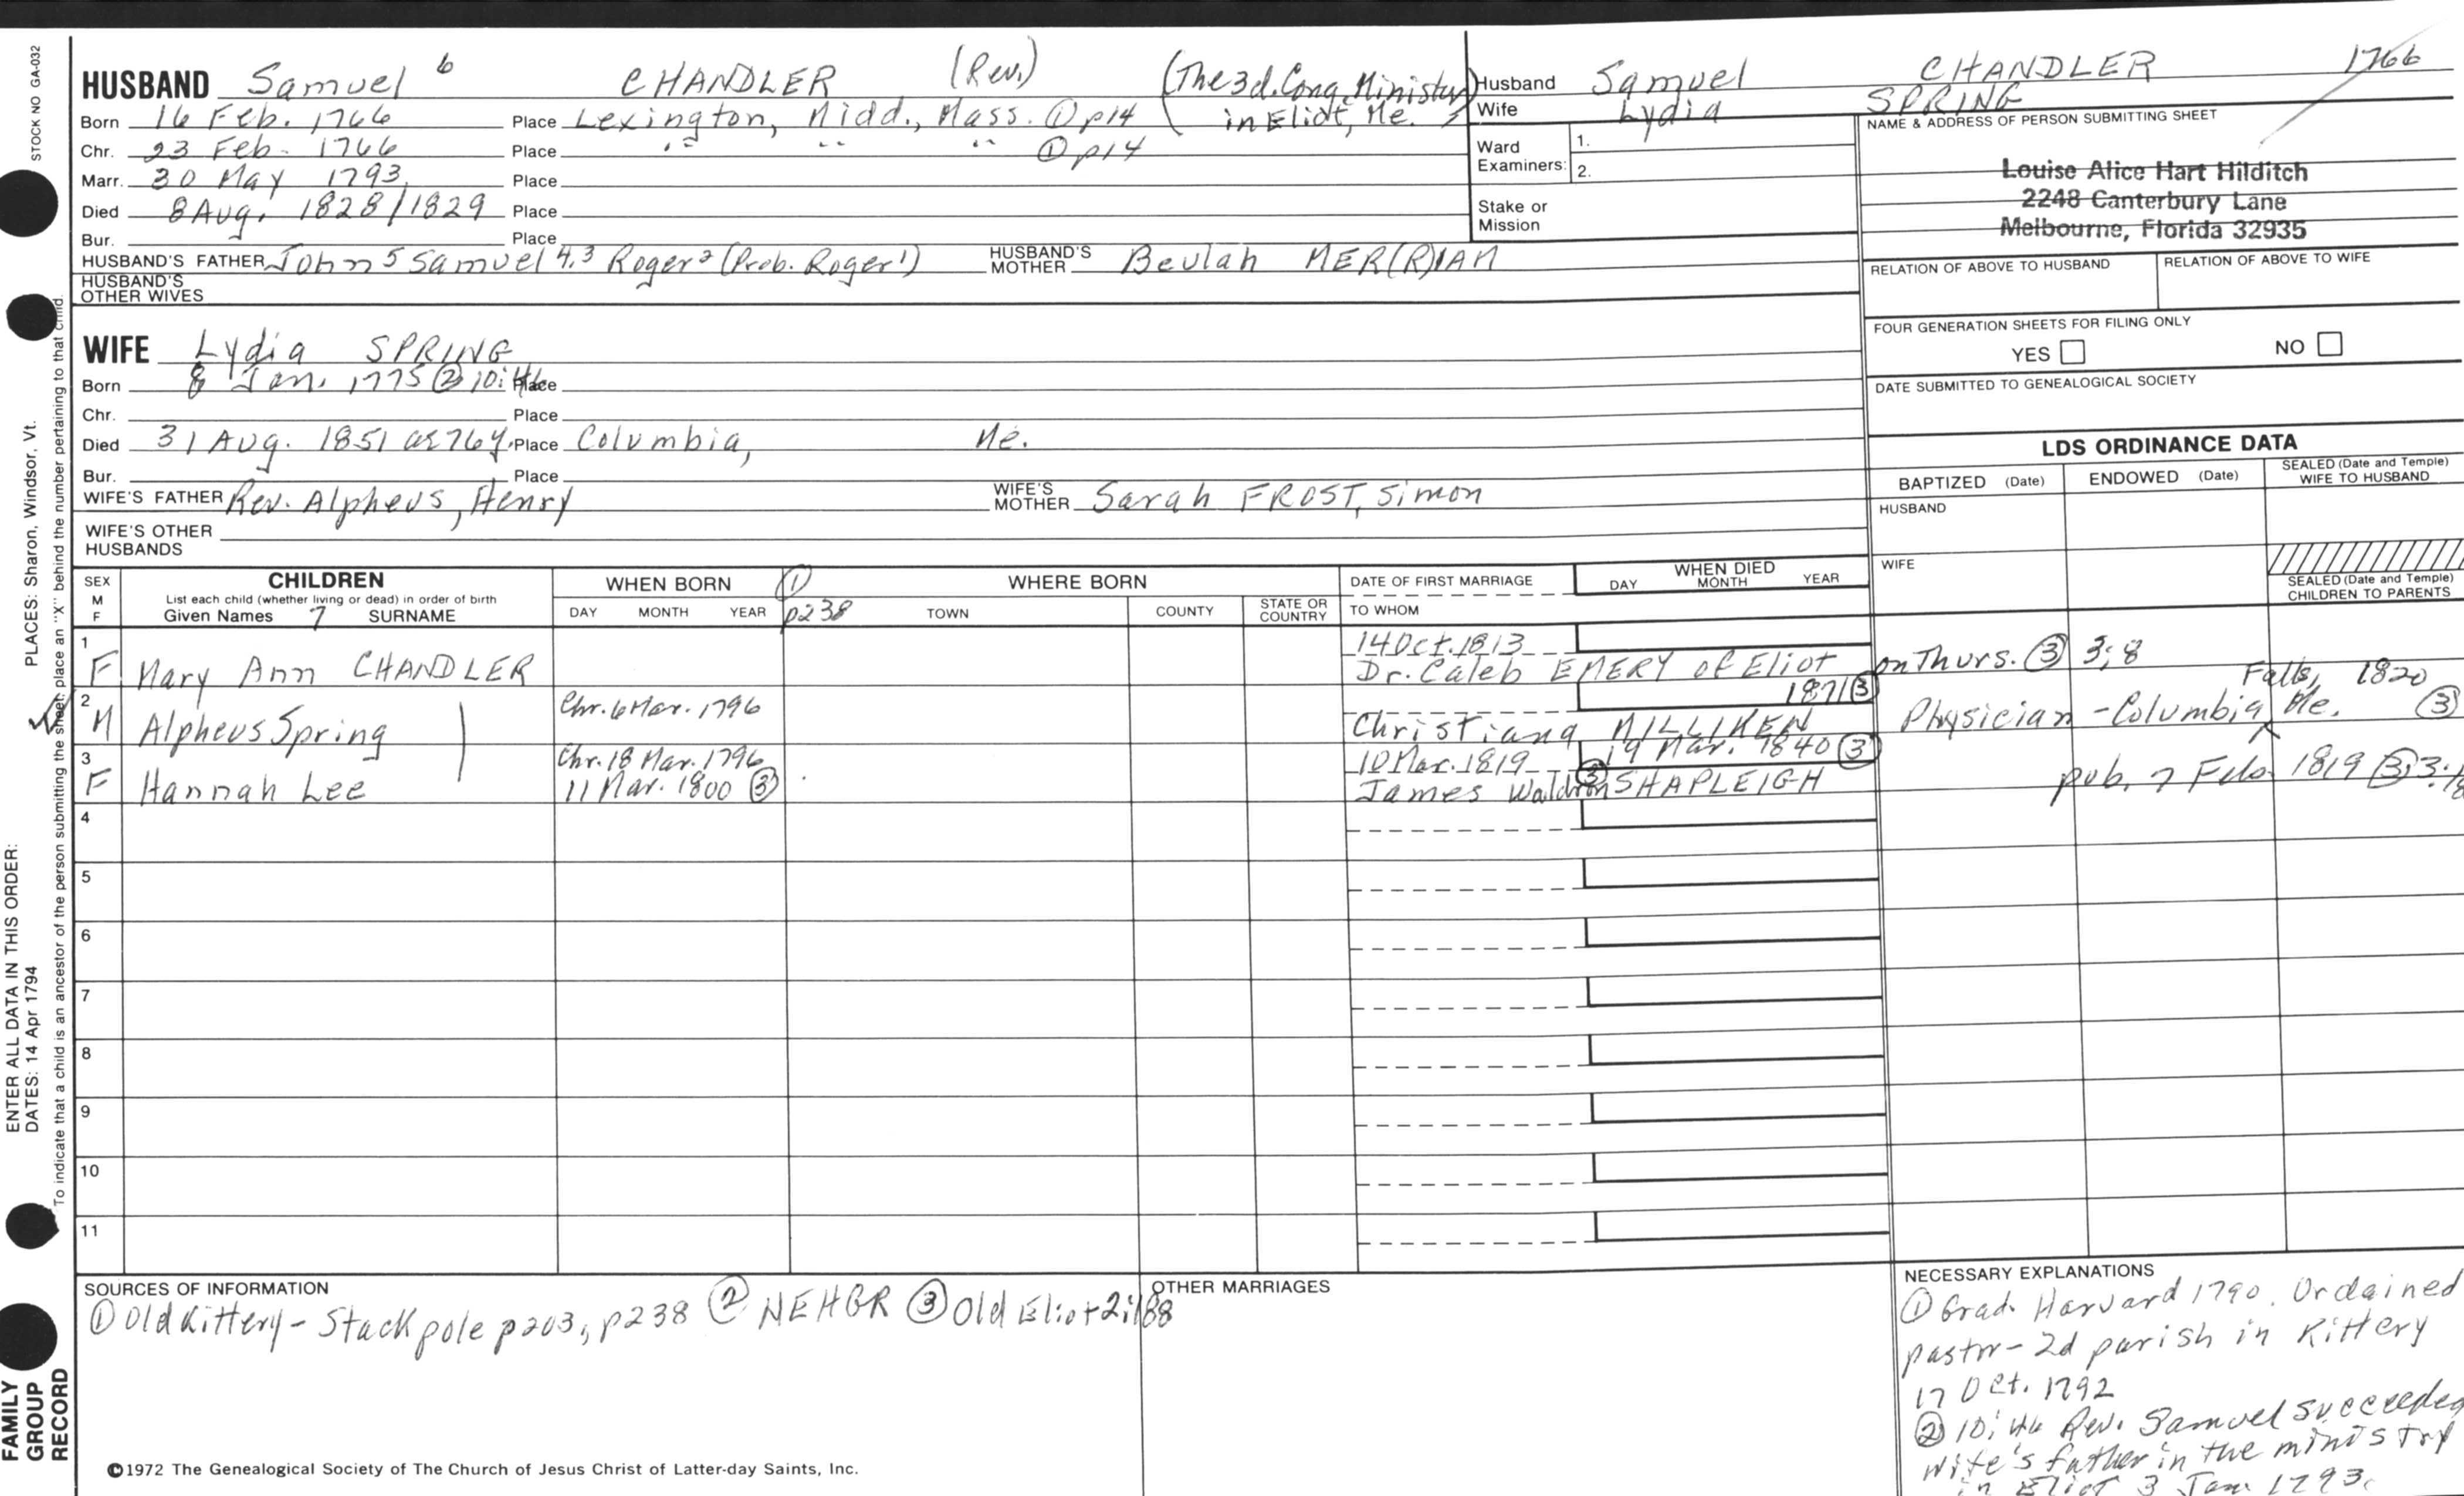 STOCK NO GA-032
HUSBAND Samuel 6 CHANDLER (Rev.) (The 3d. Cong. Minister
in Eliot, Me.)
Born 16 Feb. 1766 Place Lexington, Midd., Mass. ① p14
Chr. 23 Feb. 1766 Place " " " ① p14
Marr. 30 May 1793 Place
Died 8 Aug. 1828/1829 Place
Bur. Place
HUSBAND'S FATHER John 5 Samuel 4,3 Roger 2 (Prob. Roger 1) HUSBAND'S MOTHER Beulah MER(R)IAM
HUSBAND'S OTHER WIVES
Husband Samuel CHANDLER 1766
Wife Lydia SPRING
Ward Examiners: 1.
2.
Stake or Mission
NAME & ADDRESS OF PERSON SUBMITTING SHEET
Louise Alice Hart Hilditch
2248 Canterbury Lane
Melbourne, Florida 32935
RELATION OF ABOVE TO HUSBAND RELATION OF ABOVE TO WIFE
FOUR GENERATION SHEETS FOR FILING ONLY
YES NO
DATE SUBMITTED TO GENEALOGICAL SOCIETY
WIFE Lydia SPRING
Born 8 Jan. 1775 ② 10:46 Place
Chr. Place
Died 31 Aug. 1851 ae 76y. Place Columbia, Me.
Bur. Place
WIFE'S FATHER Rev. Alpheus, Henry WIFE'S MOTHER Sarah FROST, Simon
WIFE'S OTHER HUSBANDS
LDS ORDINANCE DATA
BAPTIZED (Date) ENDOWED (Date) SEALED (Date and Temple) WIFE TO HUSBAND
HUSBAND
WIFE
SEALED (Date and Temple) CHILDREN TO PARENTS
SEX M F CHILDREN
List each child (whether living or dead) in order of birth
Given Names 7 SURNAME
WHEN BORN ① p238
DAY MONTH YEAR
WHERE BORN
TOWN COUNTY STATE OR COUNTRY
DATE OF FIRST MARRIAGE
TO WHOM
WHEN DIED
DAY MONTH YEAR
1 14 Oct. 1813
F Mary Ann CHANDLER Dr. Caleb EMERY of Eliot on Thurs. ③ 3:8
2 Chr. 6 Mar. 1796 1871 ③ Falls, 1820
M Alpheus Spring Christiana MILLIKEN Physician - Columbia Me. ③
3 Chr. 18 Mar. 1796 10 Mar. 1819 19 Mar. 1840 ③
F Hannah Lee 11 Mar. 1800 ③ James Waldron ③ SHAPLEIGH pub. 7 Feb. 1819 ③
4
5
6
7
8
9
10
11
SOURCES OF INFORMATION
① Old Kittery - Stackpole p203, p238 ② NEHGR ③ Old Eliot
OTHER MARRIAGES
NECESSARY EXPLANATIONS
① Grad. Harvard 1790. Ordained
pastor - 2d parish in Kittery
17 Oct. 1792
② 10:46 Rev. Samuel succeeded
wife's father in the ministry
in Eliot 3 Jan 1793.
©1972 The Genealogical Society of The Church of Jesus Christ of Latter-day Saints, Inc.
PLACES: Sharon, Windsor, Vt.
To indicate that a child is an ancestor of the person submitting the sheet, place an "X" behind the number pertaining to that child.
ENTER ALL DATA IN THIS ORDER:
DATES: 14 Apr 1794
FAMILY
GROUP
RECORD